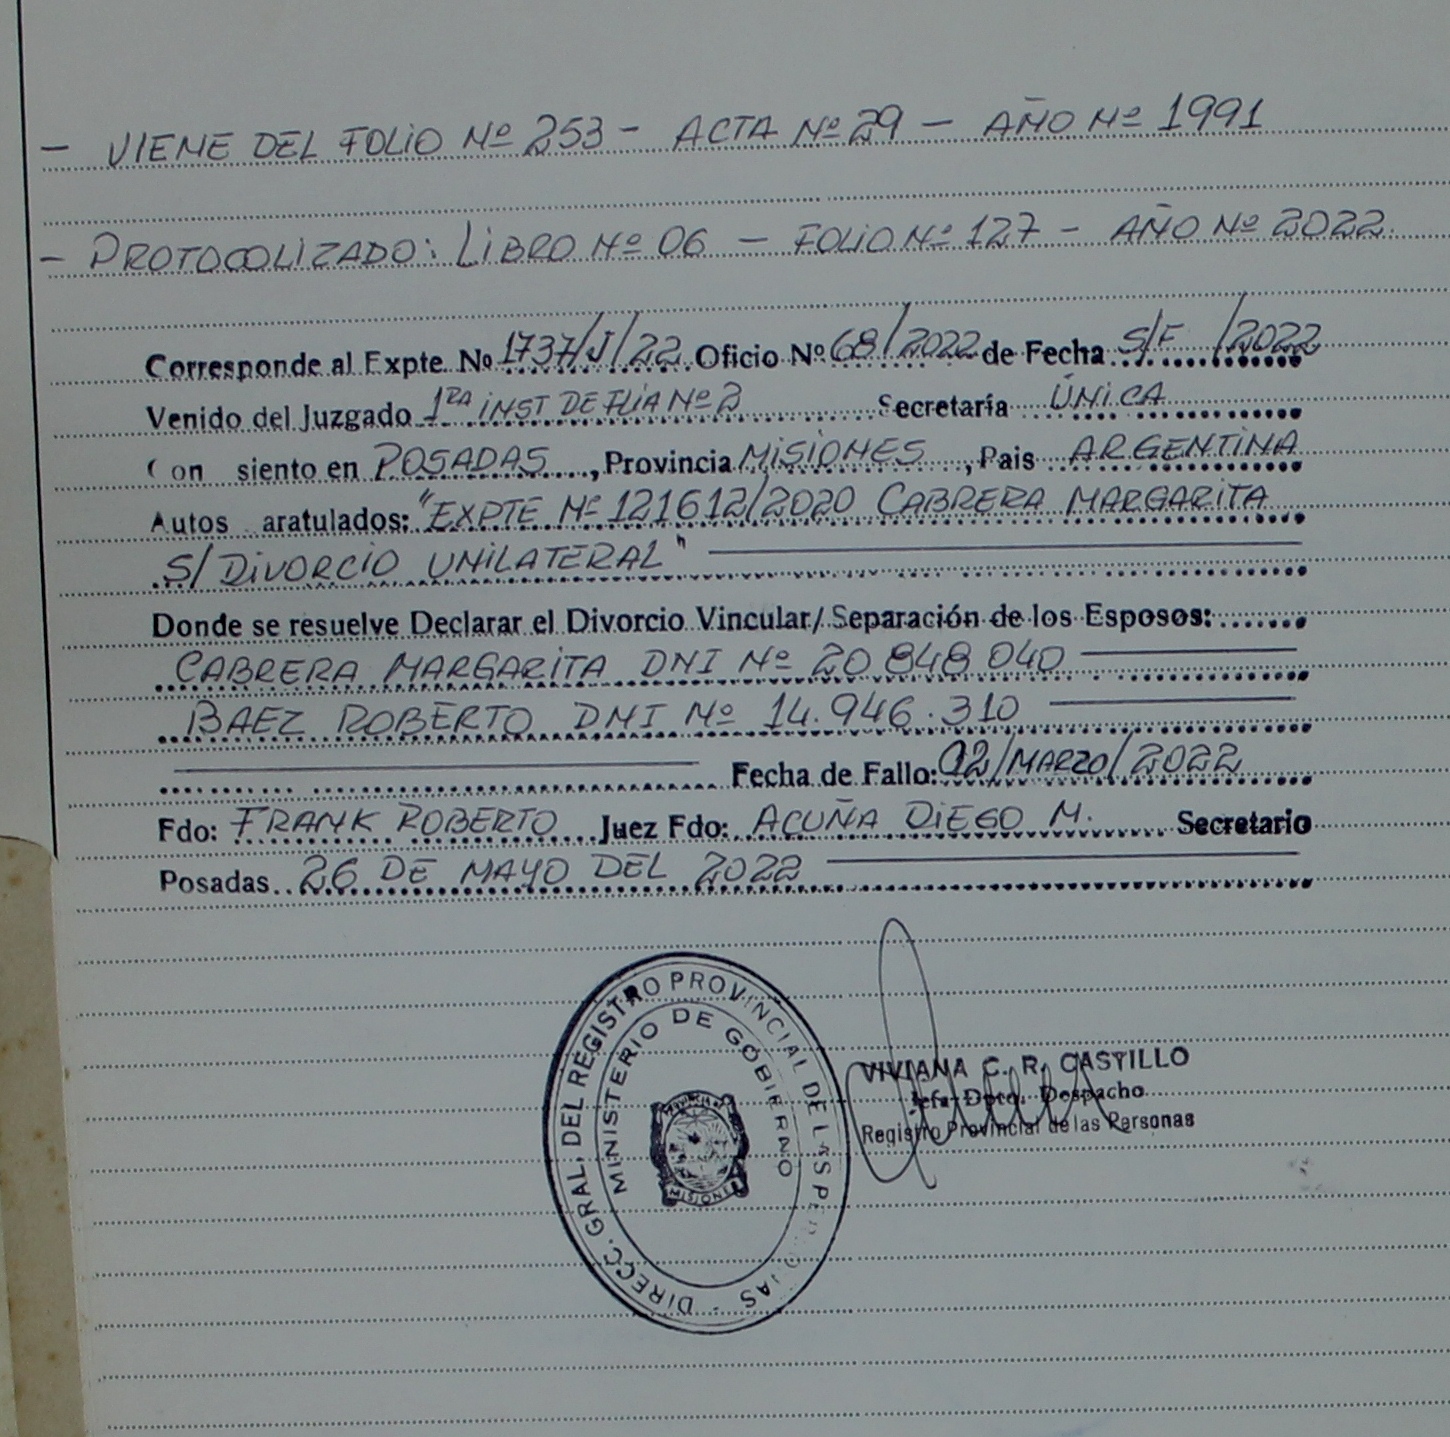 - VIENE DEL FOLIO Nº 253 - ACTA Nº 29 - AÑO Nº 1991
- PROTOCOLIZADO: LIBRO Nº 06 - FOLIO Nº 127 - AÑO Nº 2022.
Corresponde al Expte. Nº 1737/J/22 Oficio Nº 68/2022 de Fecha S/F /2022
Venido del Juzgado 1RA INST DE FLIA Nº 2 Secretaría ÚNICA
Con siento en POSADAS, Provincia MISIONES, Pais ARGENTINA
Autos aratulados: "EXPTE Nº 121612/2020 CABRERA MARGARITA
S/ DIVORCIO UNILATERAL"
Donde se resuelve Declarar el Divorcio Vincular/ Separación de los Esposos:
CABRERA MARGARITA DNI Nº 20.848.040
BAEZ ROBERTO DNI Nº 14.946.310
Fecha de Fallo: 02/MARZO/2022
Fdo: FRANK ROBERTO Juez Fdo: ACUÑA DIEGO M. Secretario
Posadas 26 DE MAYO DEL 2022
DIRECC. GRAL. DEL REGISTRO PROVINCIAL DE LAS
MINISTERIO DE GOBIERNO
PROVINCIA DE
MISIONES
VIVIANA C. R. CASTILLO
Jefa Dpto. Despacho
Registro Provincial de las Personas